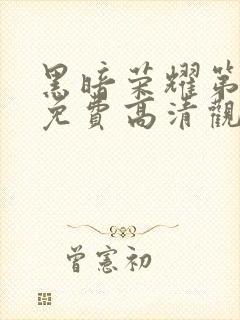 黑暗荣耀第
免費高清觀
曾憲初